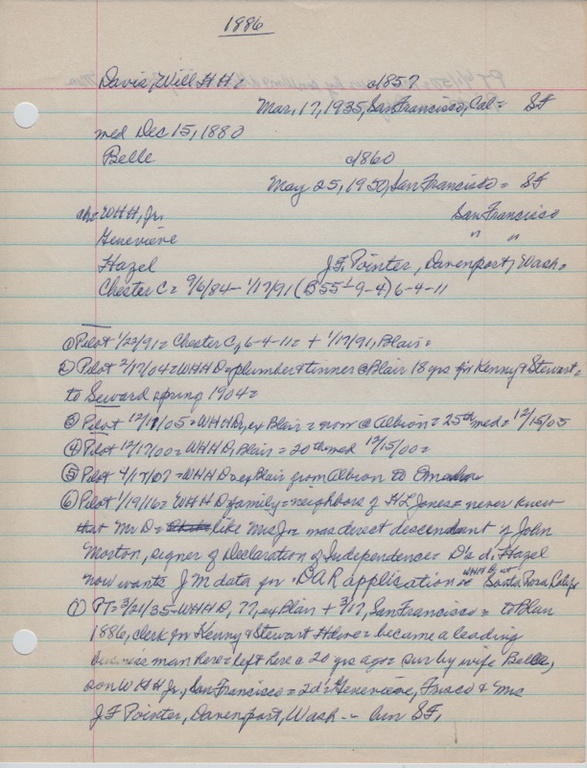 1886
Davis, Will H H = c1857
Mar. 17, 1935, San Francisco, Cal = SF
med Dec 15, 1880
Belle c1860
May 25, 1950, San Francisco = SF
ch: WHH, Jr. San Francisco
Genevieve " "
Hazel J.F. Pointer, Davenport, Wash =
Chester C = 9/6/84 - 1/17/91 (B55 9-4) 6-4-11
① Pilot 1/22/91 = Chester C, 6-4-11 = + 1/17/91, Blair =
② Pilot 2/17/04 = WHH D = plumber & tinner @ Blair 18 yrs for Kenny & Stewart =
to Seward spring 1904 =
③ Pilot 12/19/05 = WHH D, ex Blair = now @ Albion = 25th med = 12/15/05
④ Pilot 12/17/00 = WHH D, Blair = 20th med 12/15/00 =
⑤ Pilot 4/17/07 = WHH D ex Blair from Albion to Omaha
⑥ Pilot 1/19/16 = WHH D family = neighbors of HL Jones = never knew
that Mr D = like Mrs J = was direct descendant of John
Morton, signer of Declaration of Independence = D's d. Hazel
now wants JM data for DAR application = WHH D at Santa Rosa Calif
⑦ PT = 3/21/35 = WHH D, 77, ex Blair + 3/17, San Francisco = to Blair
1886, clerk for Kenny & Stewart Hdwe = became a leading
business man here = left here c 20 yrs ago = sur by wife Belle,
son WHH Jr., San Francisco = 2 d's Genevieve, Frisco & Mrs
J F Pointer, Davenport, Wash - bur SF.